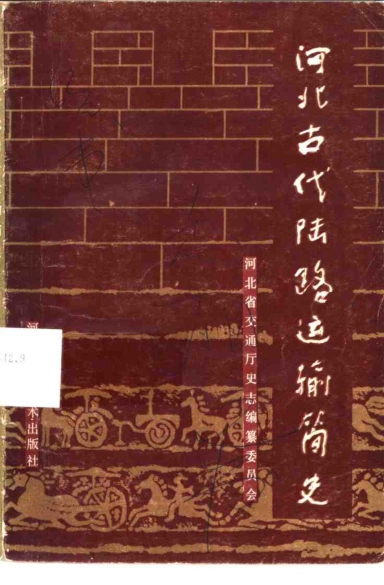 河北古代陆路运输简史
河北省交通厅史志编纂委员会
河
术出版社